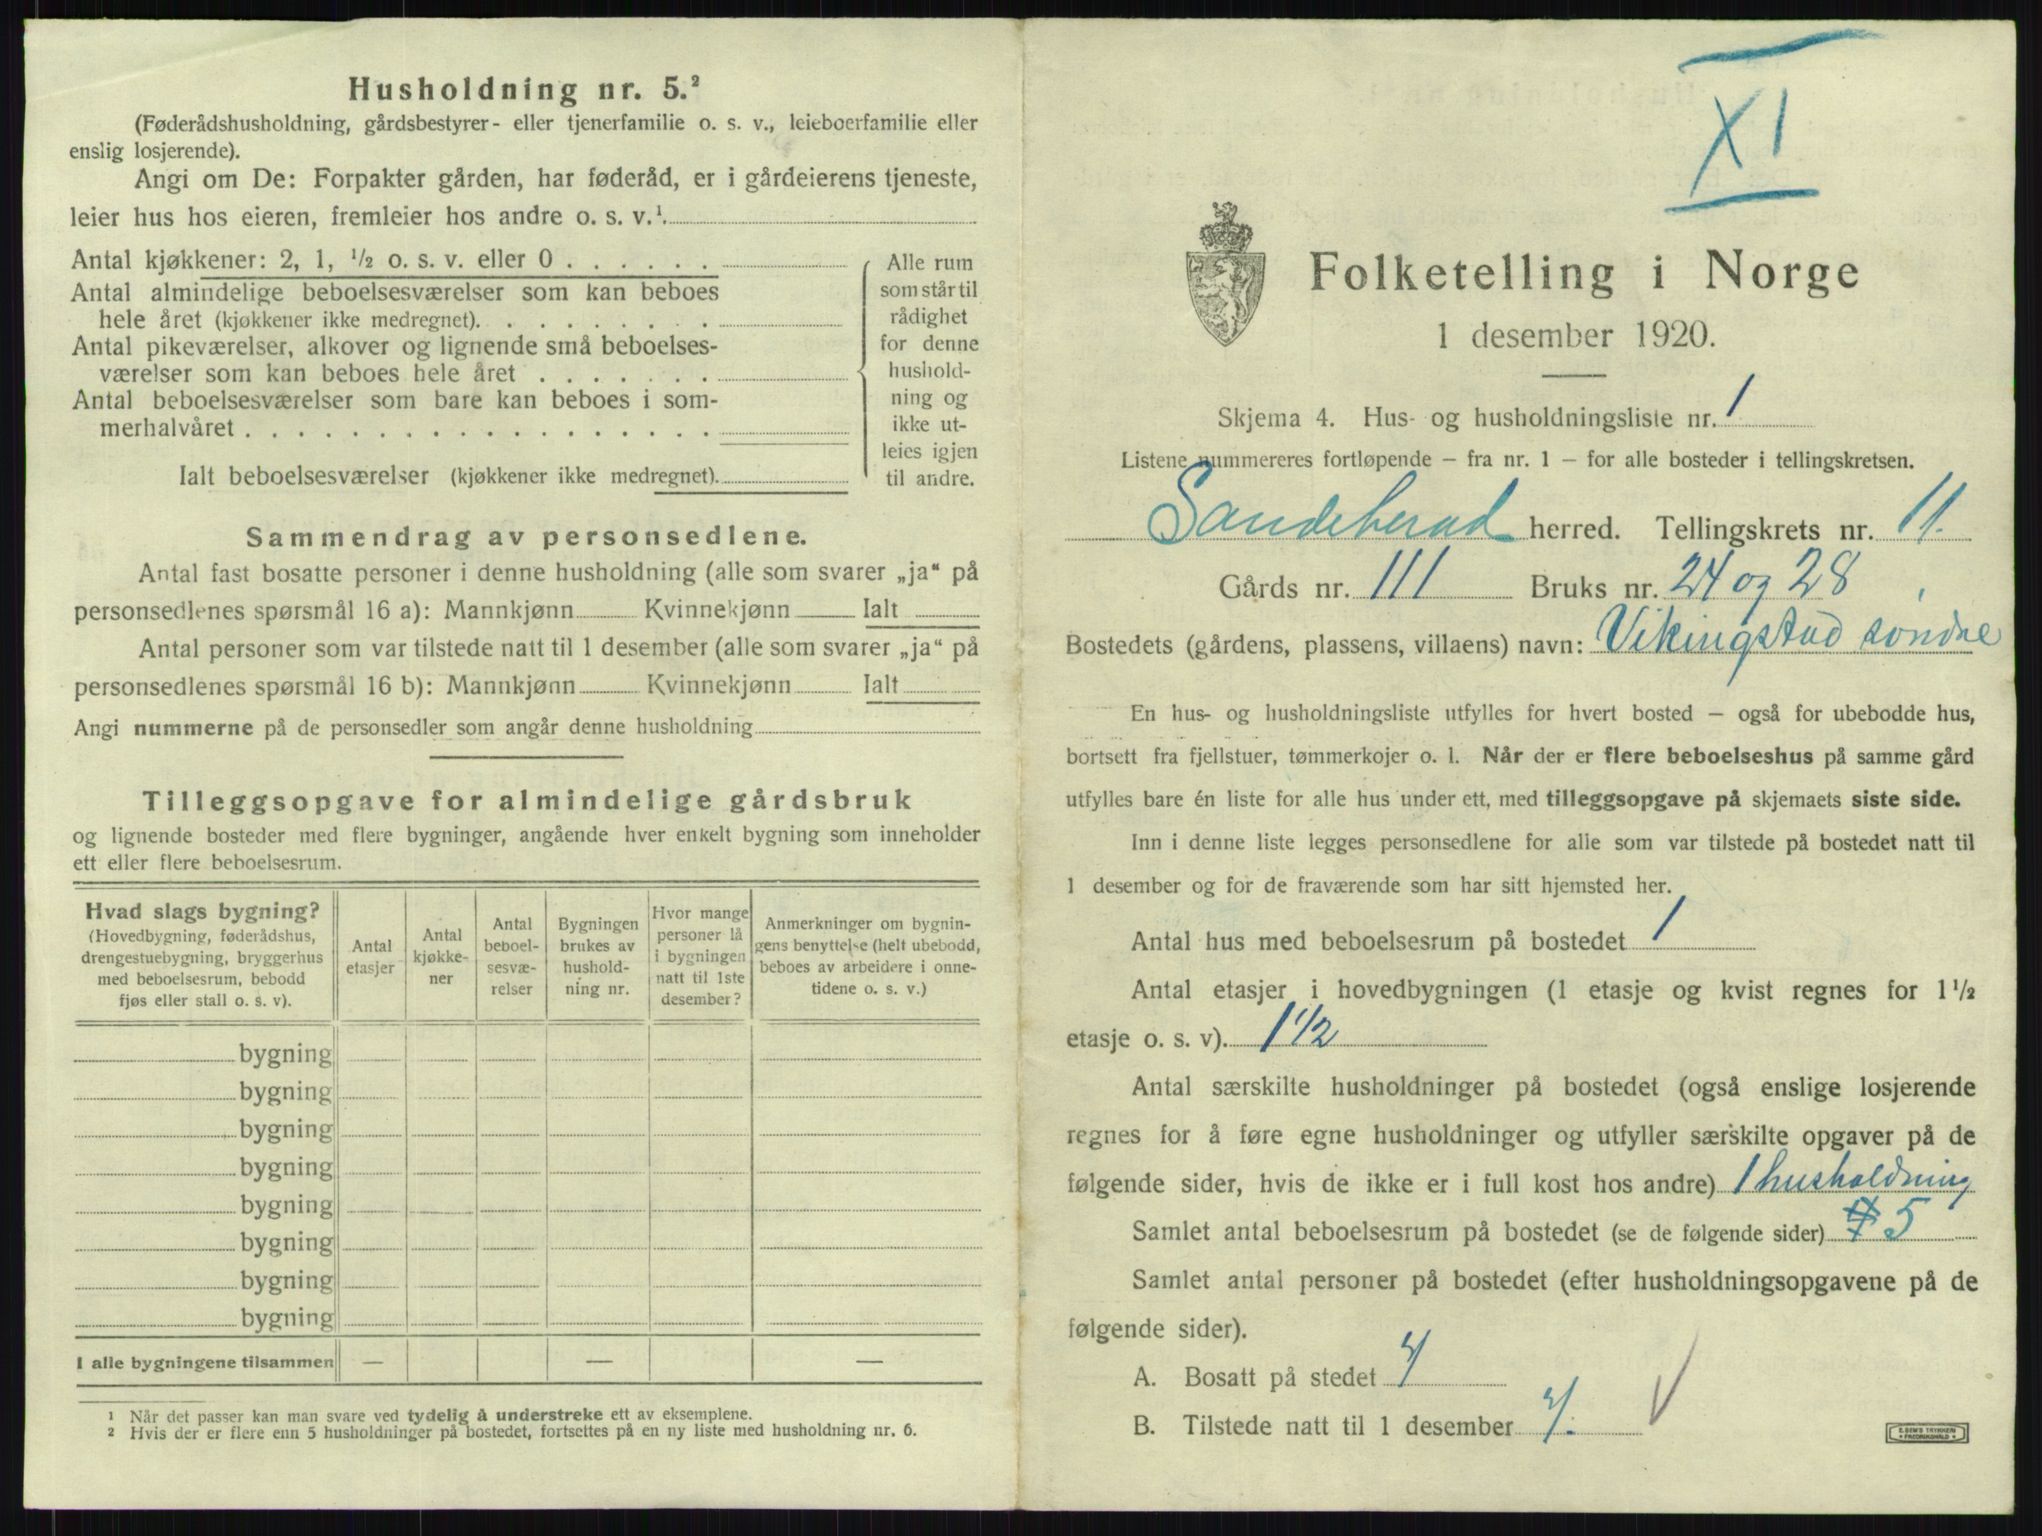 Husholdning nr. 5.²
(Føderådshusholdning, gårdsbestyrer- eller tjenerfamilie o. s. v., leieboerfamilie eller
enslig losjerende).
Angi om De: Forpakter gården, har føderåd, er i gårdeierens tjeneste,
leier hus hos eieren, fremleier hos andre o. s. v.¹
Antal kjøkkener: 2, 1, ½ o. s. v. eller 0 . . . . . .
Antal almindelige beboelsesværelser som kan beboes
hele året (kjøkkener ikke medregnet). . . . . . . . .
Antal pikeværelser, alkover og lignende små beboelses-
værelser som kan beboes hele året . . . . . . .
Antal beboelsesværelser som bare kan beboes i som-
merhalvåret . . . . . . . . . . . . . . . . . .
Ialt beboelsesværelser (kjøkkener ikke medregnet).
Alle rum
som står til
rådighet
for denne
hushold-
ning og
ikke ut-
leies igjen
til andre.
Sammendrag av personsedlene.
Antal fast bosatte personer i denne husholdning (alle som svarer „ja“ på
personsedlenes spørsmål 16 a): Mannkjønn Kvinnekjønn Ialt
Antal personer som var tilstede natt til 1 desember (alle som svarer „ja“ på
personsedlenes spørsmål 16 b): Mannkjønn Kvinnekjønn Ialt
Angi nummerne på de personsedler som angår denne husholdning
Tilleggsopgave for almindelige gårdsbruk
og lignende bosteder med flere bygninger, angående hver enkelt bygning som inneholder
ett eller flere beboelsesrum.
Hvad slags bygning?
(Hovedbygning, føderådshus,
drengestuebygning, bryggerhus
med beboelsesrum, bebodd
fjøs eller stall o. s. v).
Antal
etasjer
Antal
kjøkke-
ner
Antal
beboel-
sesvæ-
relser
Bygningen
brukes av
hushold-
ning nr.
Hvor mange
personer lå
i bygningen
natt til 1ste
desember?
Anmerkninger om bygnin-
gens benyttelse (helt ubebodd,
beboes av arbeidere i onne-
tidene o. s. v.)
bygning
bygning
bygning
bygning
bygning
bygning
bygning
bygning
I alle bygningene tilsammen — — —
¹ Når det passer kan man svare ved tydelig å understreke ett av eksemplene.
² Hvis der er flere enn 5 husholdninger på bostedet, fortsettes på en ny liste med husholdning nr. 6.
XI
Folketelling i Norge
1 desember 1920.
Skjema 4. Hus- og husholdningsliste nr. 1
Listene nummereres fortløpende – fra nr. 1 – for alle bosteder i tellingskretsen.
Sandeherad herred. Tellingskrets nr. 11.
Gårds nr. 111 Bruks nr. 24 og 28
Bostedets (gårdens, plassens, villaens) navn: Vikingstad søndre
En hus- og husholdningsliste utfylles for hvert bosted – også for ubebodde hus,
bortsett fra fjellstuer, tømmerkojer o. l. Når der er flere beboelseshus på samme gård
utfylles bare én liste for alle hus under ett, med tilleggsopgave på skjemaets siste side.
Inn i denne liste legges personsedlene for alle som var tilstede på bostedet natt til
1 desember og for de fraværende som har sitt hjemsted her.
Antal hus med beboelsesrum på bostedet 1
Antal etasjer i hovedbygningen (1 etasje og kvist regnes for 1½
etasje o. s. v). 1 1/2
Antal særskilte husholdninger på bostedet (også enslige losjerende
regnes for å føre egne husholdninger og utfyller særskilte opgaver på de
følgende sider, hvis de ikke er i full kost hos andre) 1 husholdning
Samlet antal beboelsesrum på bostedet (se de følgende sider) 5
Samlet antal personer på bostedet (efter husholdningsopgavene på de
følgende sider).
A. Bosatt på stedet 4
B. Tilstede natt til 1 desember 4.
E. SEM'S TRYKKERI
FREDRIKSHALD